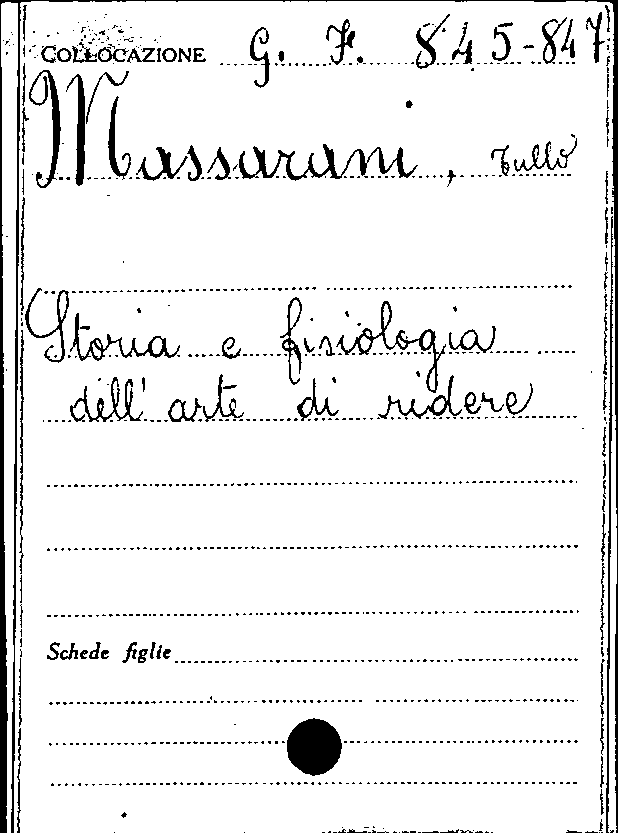 COLLOCAZIONE G. F. 845-847
Massarani, Tullo
Storia e fisiologia
dell'arte di ridere
Schede figlie